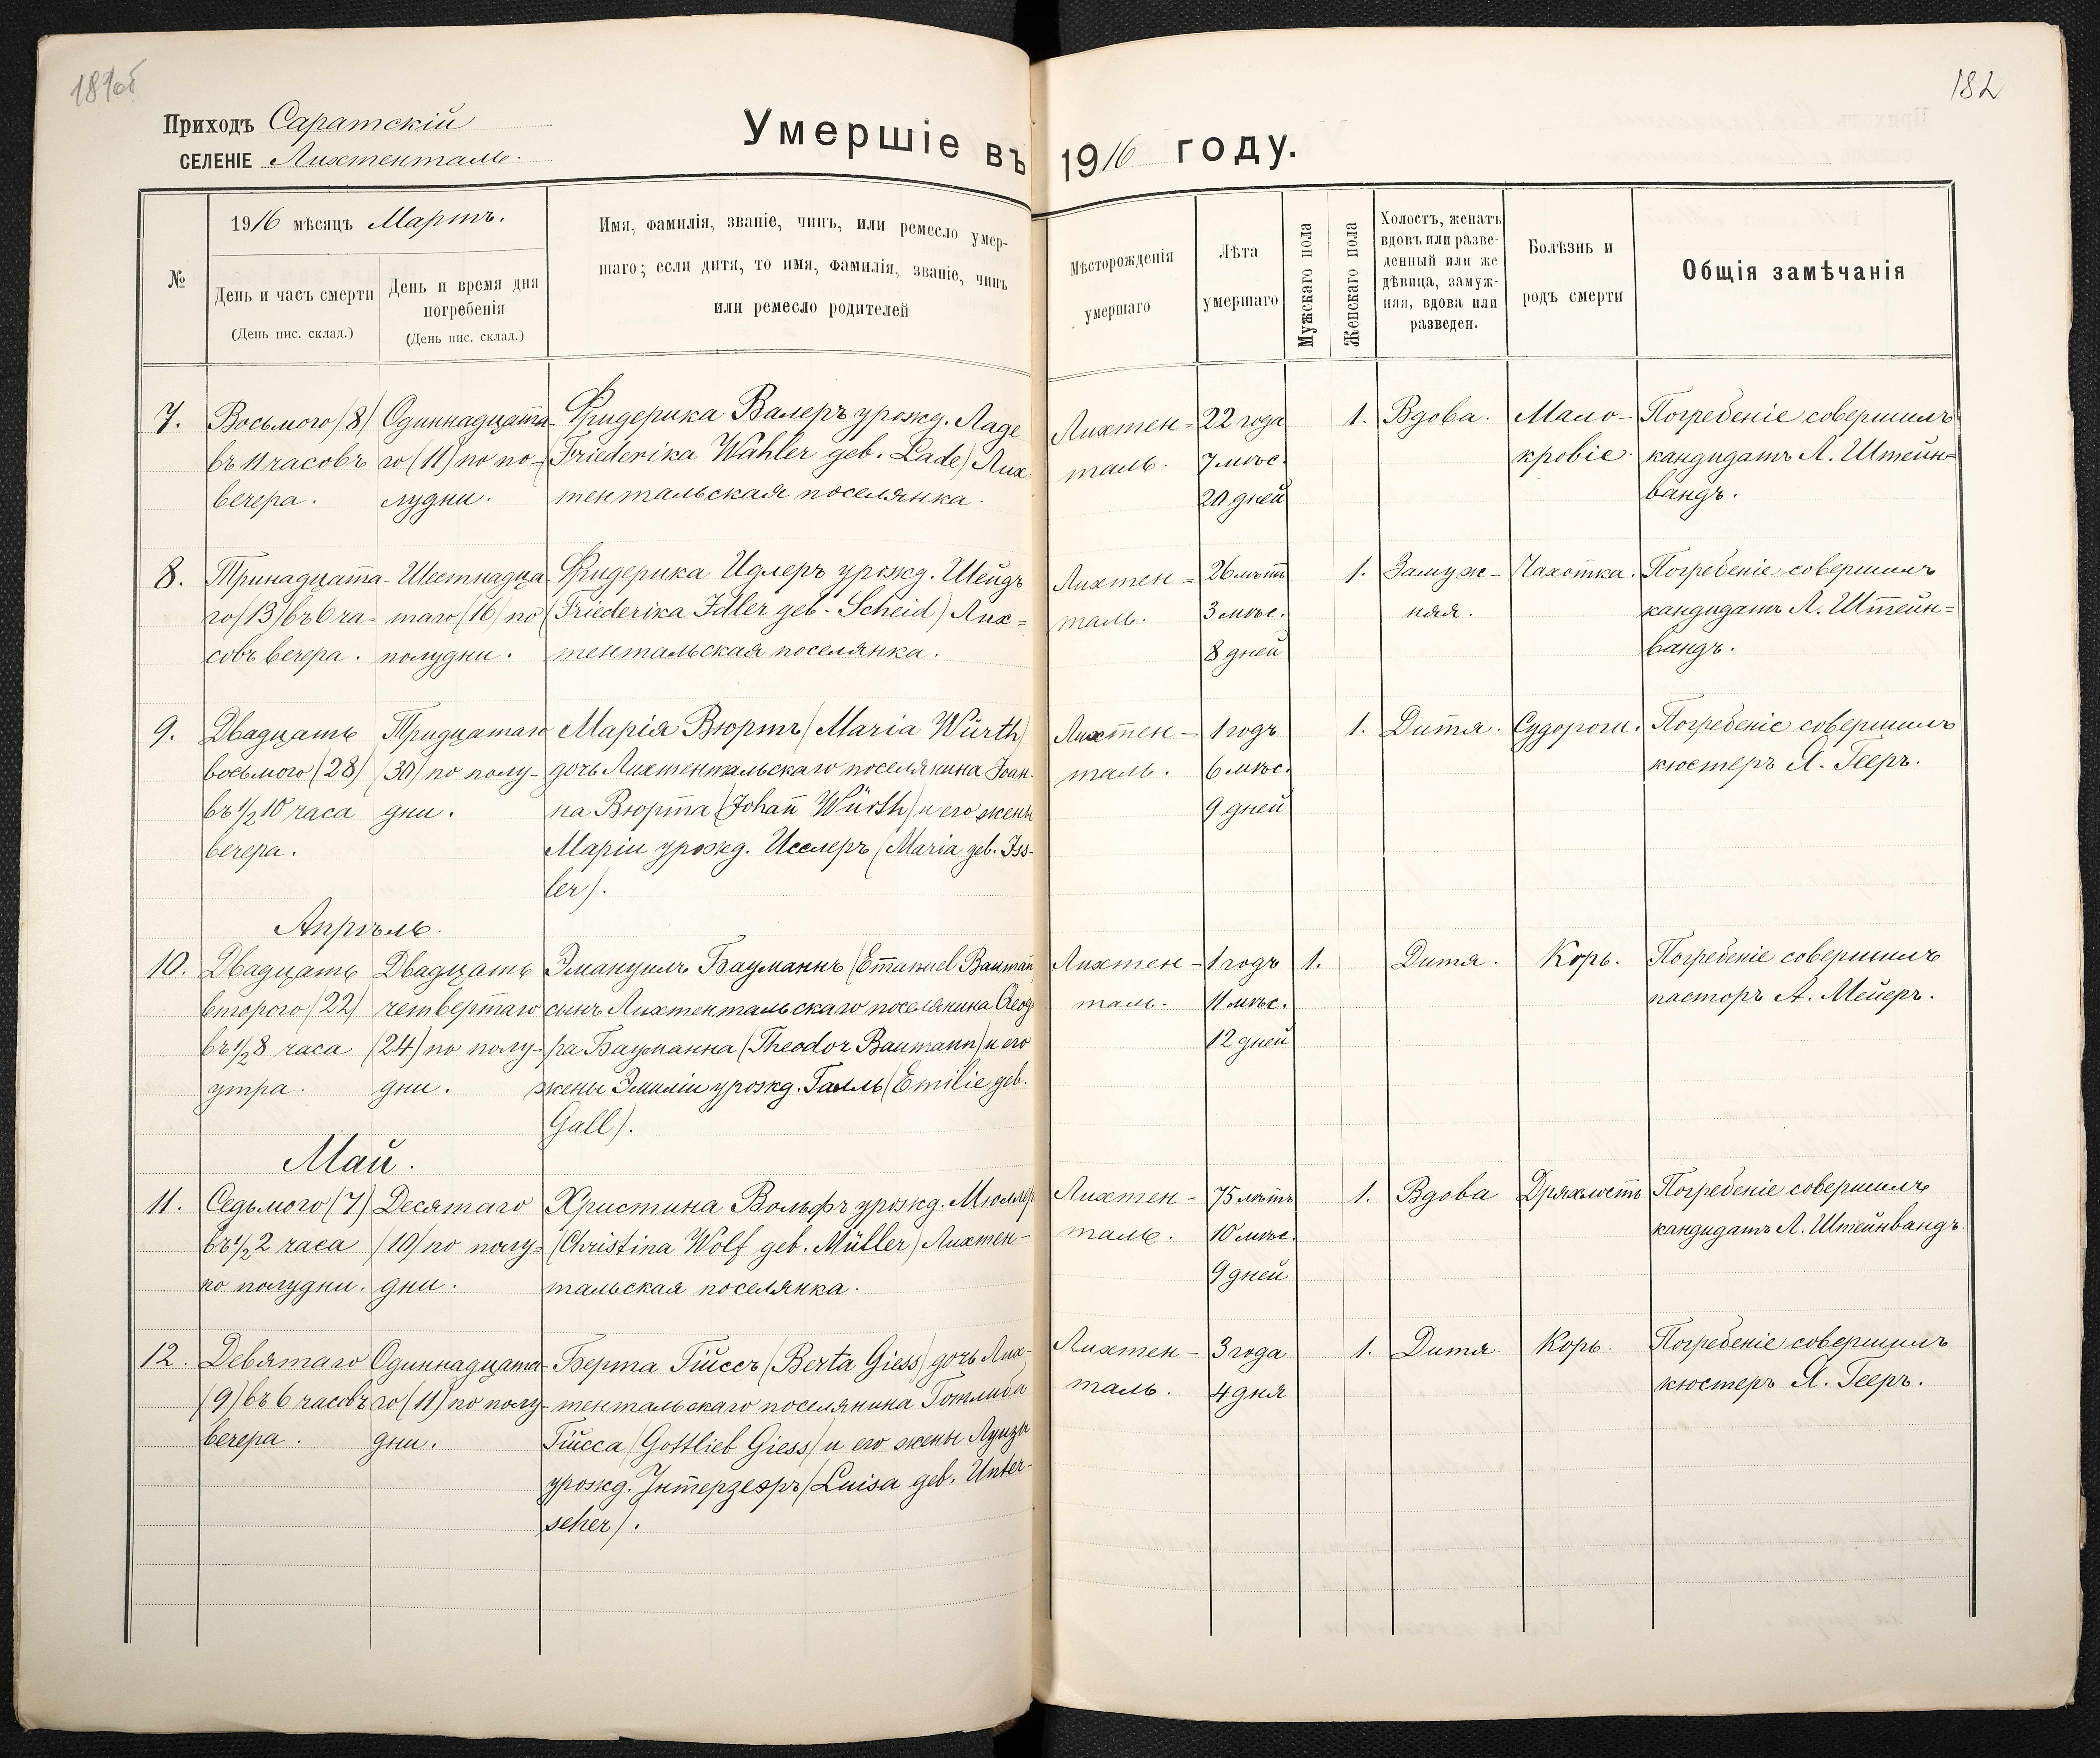 181об
182
Приходъ Саратскій
СЕЛЕНІЕ Лихтенталь.
Умершіе въ 1916 году.
№
1916 мѣсяцъ Мартъ.
День и часъ смерти
(День пис. склад.)
День и время дня
погребенія
(День пис. склад.)
Имя, фамилія, званіе, чинъ, или ремесло умер-
шаго; если дитя, то имя, фамилія, званіе, чинъ
или ремесло родителей
Мѣсторожденія
умершаго
Лѣта
умершаго
Мужскаго пола
Женскаго пола
Холостъ, женатъ
вдовъ или разве-
денный или же
дѣвица, замуж-
няя, вдова или
разведен.
Болѣзнь и
родъ смерти
Общія замѣчанія
7.
Восьмого (8)
въ 11 часовъ
вечера.
Одиннадцата-
го (11) по по-
лудни.
Фридерика Валеръ урожд. Ладе
(Friederika Wahler geb. Lade) Лих-
тентальская поселянка.
Лихтен-
таль.
22 года
7 мѣс.
20 дней
1.
Вдова.
Мало-
кровіе.
Погребеніе совершилъ
кандидатъ Л. Штейн-
вандъ.
8.
Тринадцата-
го (13) въ 6 ча-
совъ вечера.
Шестнадца-
таго (16) по
полудни.
Фридерика Идлеръ урожд. Шейдъ
(Friederika Idler geb. Scheid) Лих-
тентальская поселянка.
Лихтен-
таль.
26 лѣтъ
3 мѣс.
8 дней
1.
Замуж-
няя.
Чахотка.
Погребеніе совершилъ
кандидатъ Л. Штейн-
вандъ.
9.
Двадцать
восьмого (28)
въ 1/2 10 часа
вечера.
Тридцатаго
(30) по полу-
дни.
Марія Вюртъ (Maria Würth)
дочь Лихтентальскаго поселянина Іоан-
на Вюрта (Johan̄ Würth) и его жены
Маріи урожд. Исслеръ (Maria geb. Iss-
ler).
Лихтен-
таль.
1 годъ
6 мѣс.
9 дней
1.
Дитя.
Судороги.
Погребеніе совершилъ
кюстеръ Я. Гееръ.
Апрѣль.
10.
Двадцать
второго (22)
въ 1/2 8 часа
утра.
Двадцать
четвертаго
(24) по полу-
дни.
Эмануилъ Бауманнъ (Emanuel Bauman̄)
сынъ Лихтентальскаго поселянина Ѳеодо-
ра Бауманна (Theodor Baumann) и его
жены Эмиліи урожд. Галль (Emilie geb.
Gall).
Лихтен-
таль.
1 годъ
11 мѣс.
12 дней
1.
Дитя.
Корь.
Погребеніе совершилъ
пасторъ А. Мейеръ.
Май.
11.
Седьмого (7)
въ 1/2 2 часа
по полудни.
Десятаго
(10) по полу-
дни.
Христина Вольфъ урожд. Мюллеръ
(Christina Wolf geb. Müller) Лихтен-
тальская поселянка.
Лихтен-
таль.
75 лѣтъ
10 мѣс.
9 дней
1.
Вдова
Дряхлость
Погребеніе совершилъ
кандидатъ Л. Штейнвандъ.
12.
Девятаго
(9) въ 6 часовъ
вечера.
Одиннадцата-
го (11) по полу-
дни.
Берта Гиссъ (Berta Giess) дочь Лих-
тентальскаго поселянина Готлиба
Гисса (Gottlieb Giess) и его жены Луизы
урожд. Унтерзееръ (Luisa geb. Unter-
seher).
Лихтен-
таль.
3 года
4 дня
1.
Дитя
Корь.
Погребеніе совершилъ
кюстеръ Я. Гееръ.